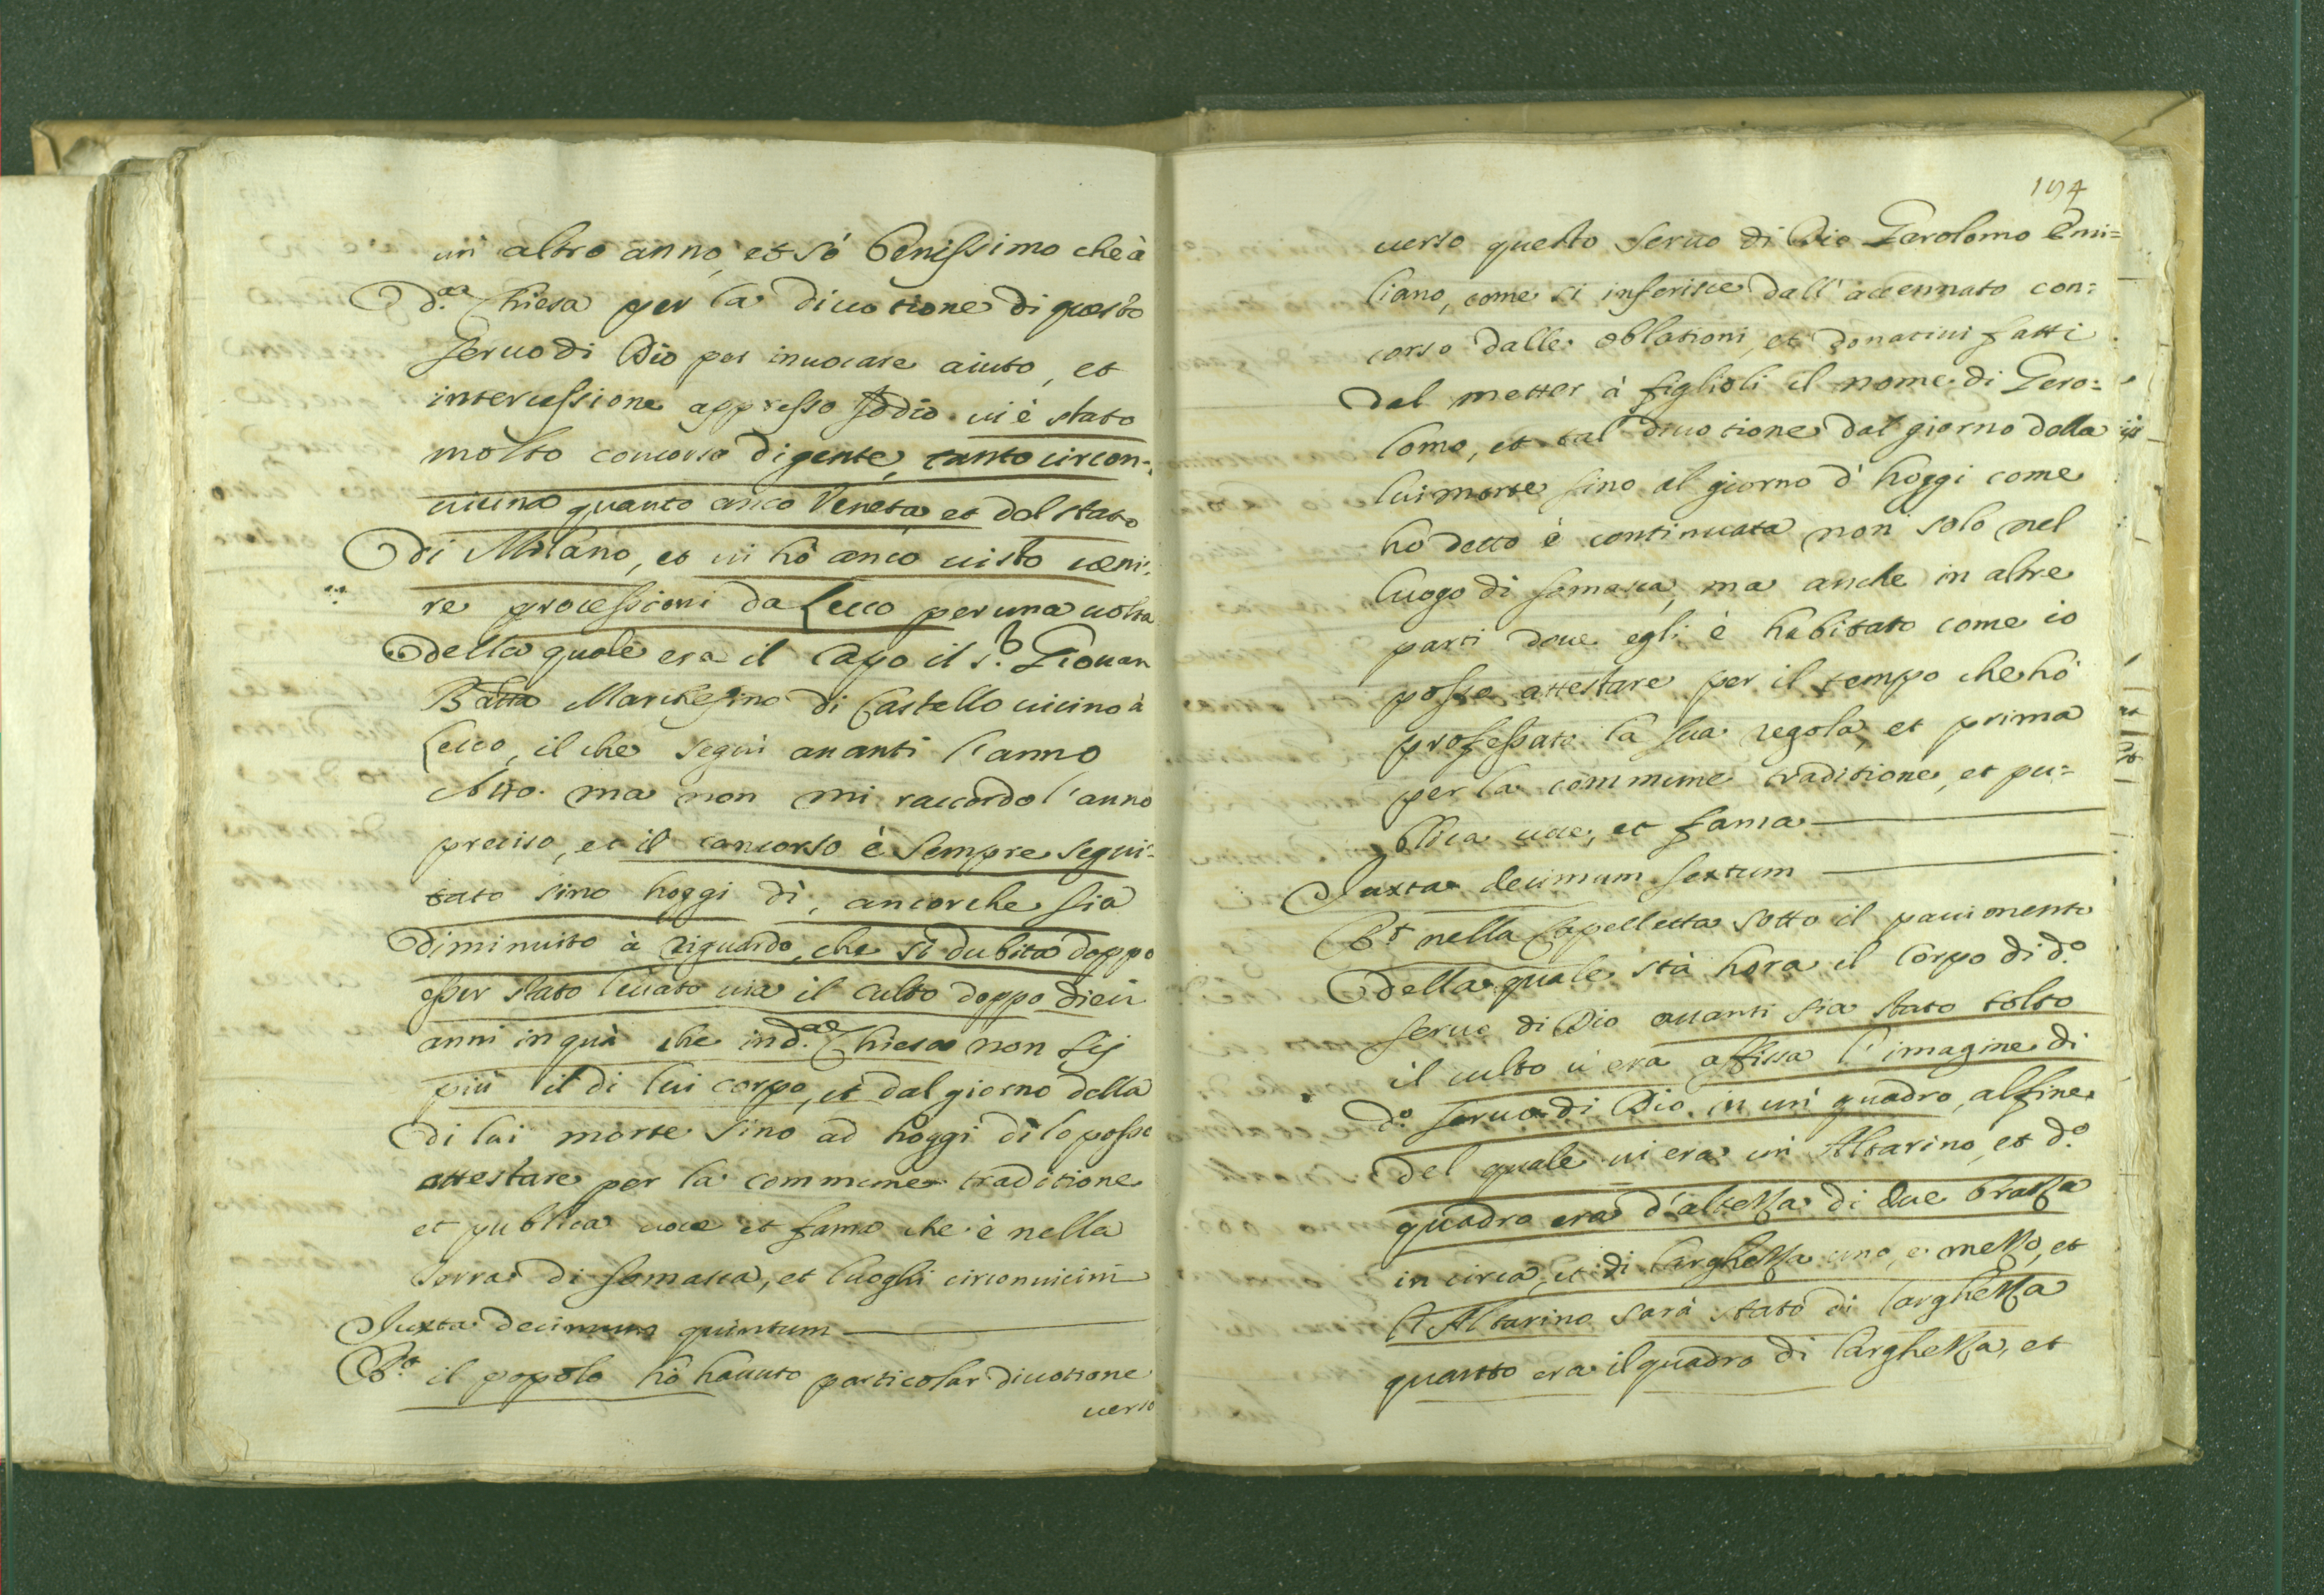 un' altro anno, et só benissimo che à
d.ᵃ Chiesa per la diuotione di questo
seruo di Dio per inuocare aiuto, et
intercessione appresso Iddio ui è stato
molto concorso di gente, tanto circon-
uicina quanto anco Veneta et dal stato
di Milano, et ui hò anco uisto ueni-
re processioni da Lecco per una uolta
della quale era il Capo il s.ʳ Giouan
Batta Marchesino di Castello uicino à
Lecco, il che seguì auanti l'anno
ma non mi raccordo l'anno
preciso, et il concorso è sempre segui-
tato sino hoggi dì, ancorche sia
diminuito à riguardo, che si dubita doppo
esser stato leuato uia il culto doppo dieci
anni in quà che in d.ᵃ Chiesa non sij
più il di lui corpo, et dal giorno della
di lui morte sino ad hoggi dì lo posso
attestare per la commune traditione
et publica uoce et fama che è nella
terra di Somasca, et luoghi circonuicini
Iuxta decimum quintum
R.ᵗ il popolo hò hauuto particolar diuotione
uerso
194
uerso questo seruo di Dio Gerolomo Emi=
liano, come si inferisce dall'accennato con=
corso dalle oblationi, et donatiui fatti
dal metter à figlioli il nome di Gero=
lomo, et tal diuotione dal giorno della
lui morte sino al giorno d'hoggi come
ho detto è continuata non solo nel
luogo di Somasca, ma anche in altre
parti doue egli è habitato come io
posso attestare per il tempo che hò
professato la sua regola, et prima
per la commune traditione, et pu=
blica uoce, et fama
Iuxta decimum sextum
R.ᵗ nella Capelletta sotto il pauimento
della quale stà hora il Corpo di d.º
seruo di Dio auanti sia stato tolto
il culto u'era affissa l'imagine di
d.º seruo di Dio in un' quadro, al fine
del quale ui era un' Altarino, et d.º
quadro era d'altezza di due brazza
in circa, et di larghezza uno, e mezzo, et
l'Altarino sarà stato di larghezza
quanto era il quadro di larghezza, et